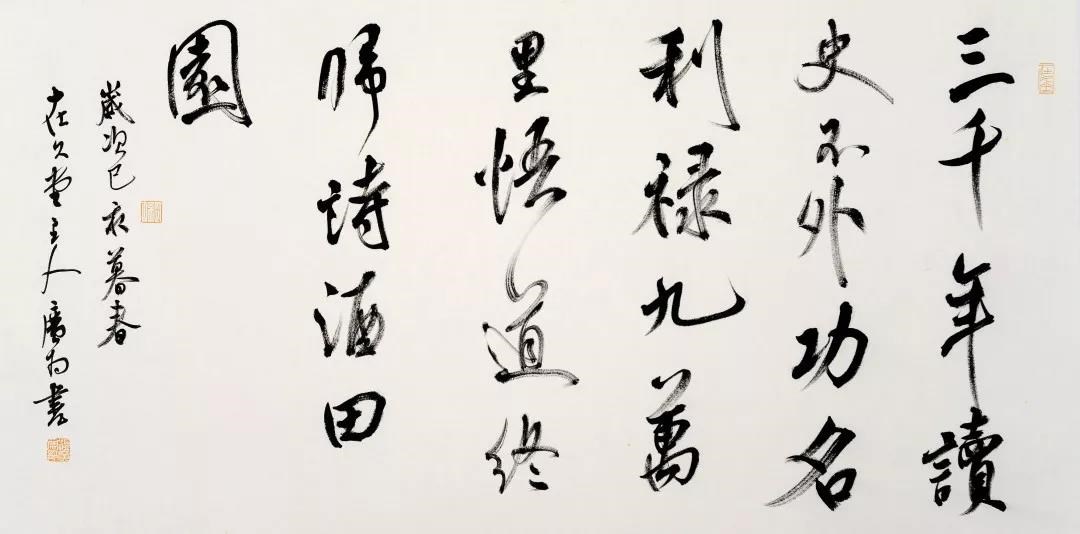 三千年讀
史不外功名
利祿九萬
里悟道終
歸詩酒田
園
歲次己亥暮春
在久堂主人廣為書